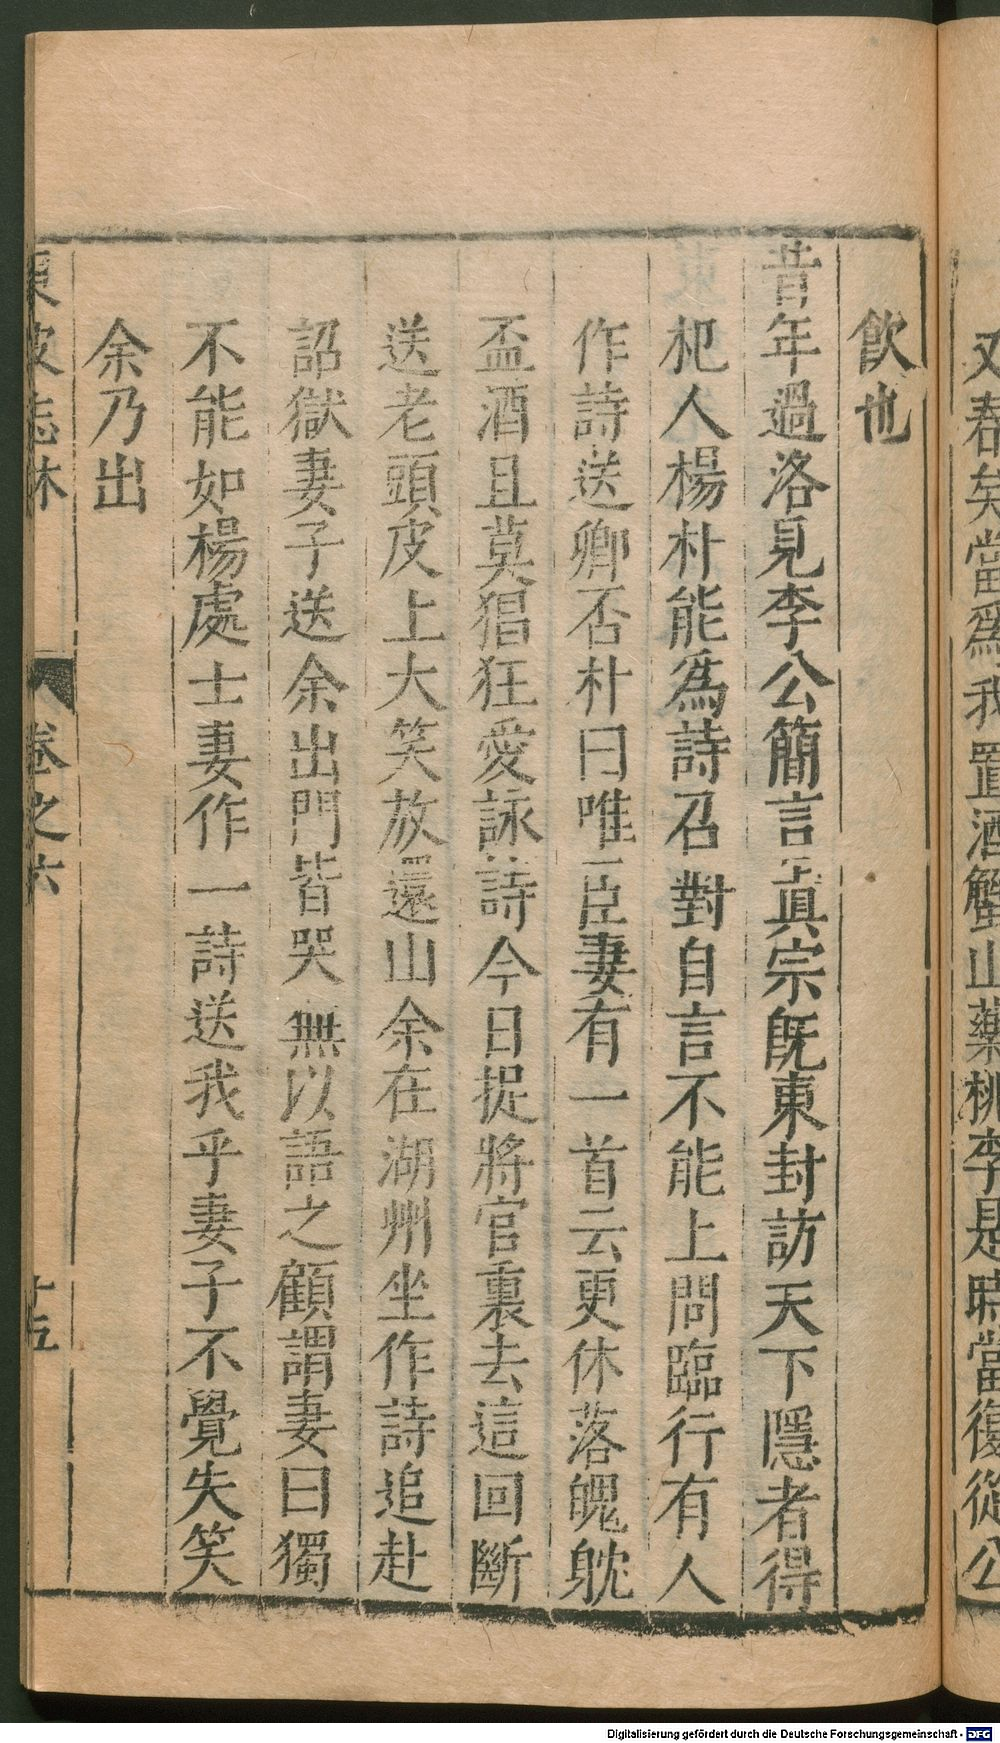 又春矣當爲我置酒蟹山藥桃李是時當復從公
飲也
昔年過洛見李公簡言真宗旣東封訪天下隱者得
杞人楊朴能爲詩召對自言不能上問臨行有人
作詩送卿否朴曰唯臣妻有一首云更休落魄躭
盃酒且莫猖狂愛詠詩今日捉將官裏去這回斷
送老頭皮上大笑放還山余在湖州坐作詩追赴
詔獄妻子送余出門皆哭無以語之顧謂妻曰獨
不能如楊處士妻作一詩送我乎妻子不覺失笑
余乃出
東坡志林 卷之六 十五
Digitalisierung gefördert durch die Deutsche Forschungsgemeinschaft - DFG